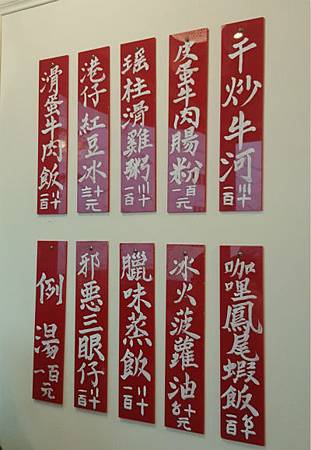 干炒牛河 一百〣十
皮蛋牛肉腸粉 一百元
瑶柱滑雞粥 一百〣十
港仔紅豆冰 十元
滑蛋牛肉飯 一百〢十
咖哩鳳尾蝦飯 一百
冰火菠蘿油 十元
臘味蒸飯 一百〢十
邪惡三眼仔 一百〢十
例湯 一百元